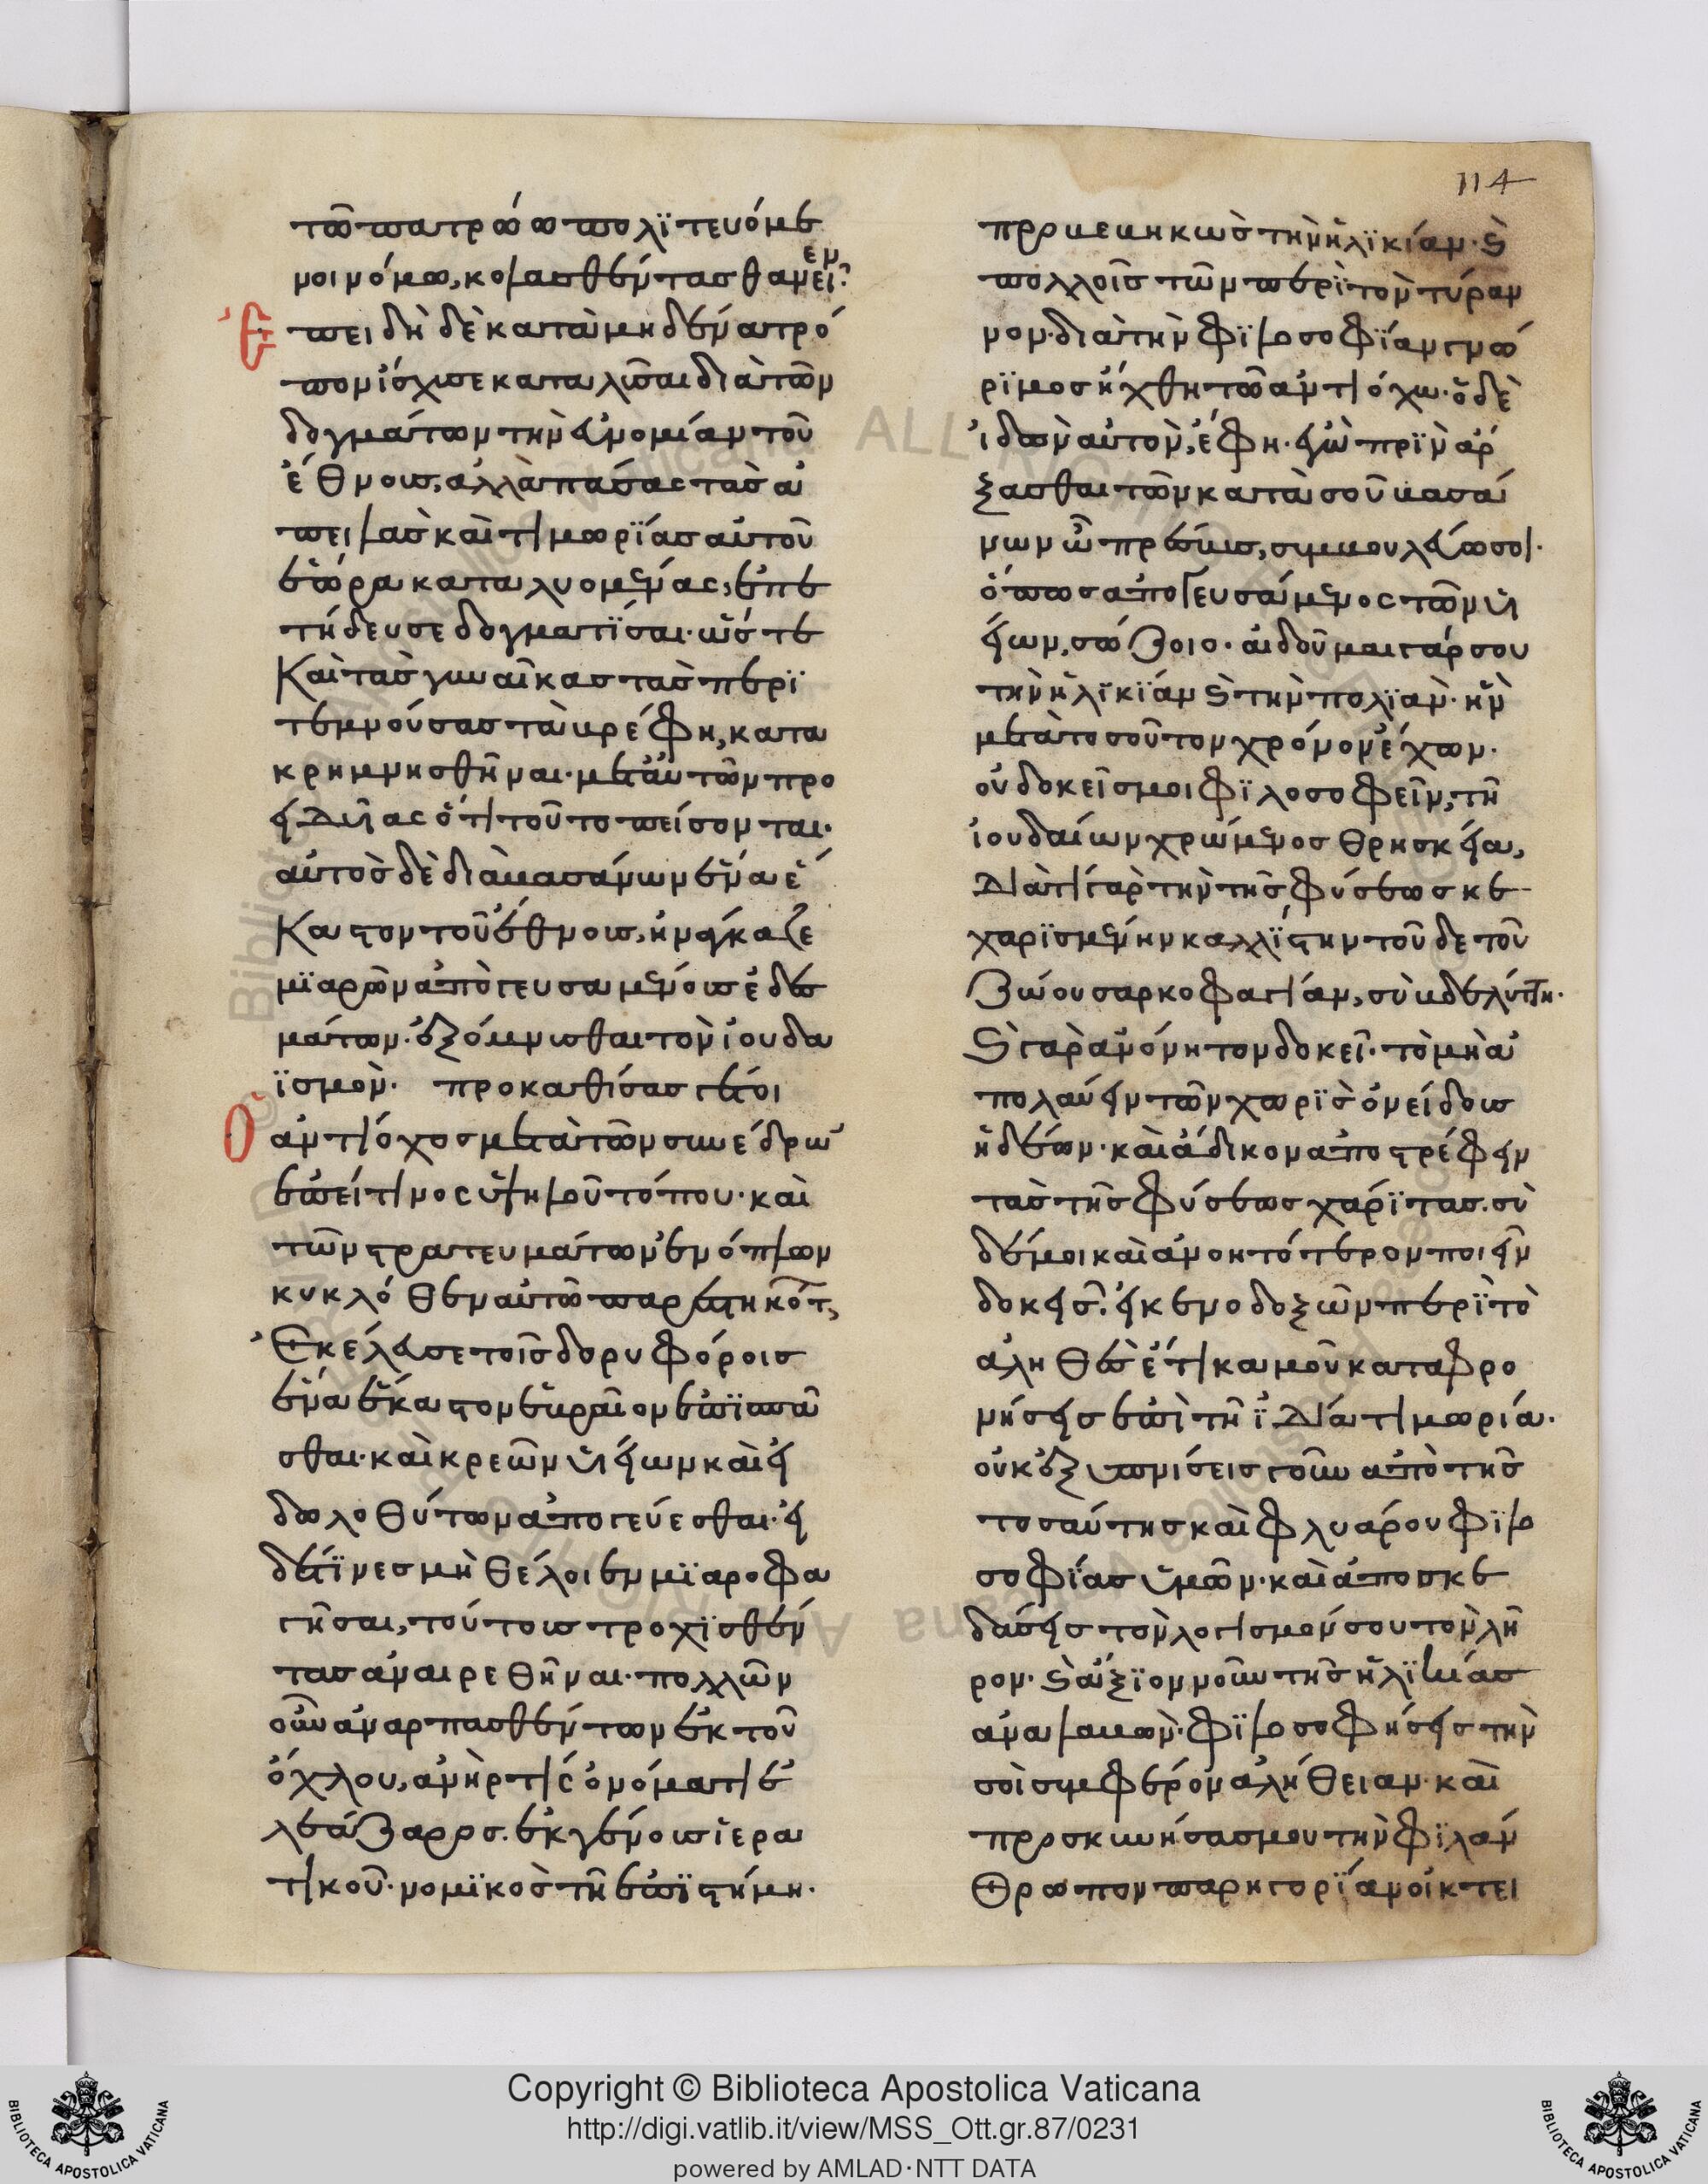 114
τῶ πατρώω πολϊτευόμε
νοι νόμω, κολασθέντασ θανεῖν·
Ἐπειδὴ δὲ κατὰ μηδένα τρό
πον ἴσχυσε καταλῦσαι διὰ τῶν
δογμάτων τὴν εὐνομίαν τοῦ
ἔθνουσ, ἀλλὰ πάσας τὰσ ἀ
πειλὰσ καὶ τιμωρΐασ αὐτοῦ
ἑώρα καταλυομένας, ἐπε
τήδευσε δογματΐσαι· ὥστε
Καὶ τὰσ γυναῖκασ τὰσ περϊ
τεμνούσασ τὰ βρέφη, κατα
κρημνησθῆναι· μετ' αὐτῶν προ
ειδυίας ὅτι τοῦτο πείσονται·
αὐτὸσ δὲ διὰ βασάνων ἕνα ἕ
Καστον τοῦ ἔθνουσ, ἠνάγκαζε
μϊαρῶν ἀπογευσαμένουσ ἐδεσ
μάτων· ἐξόμνυσθαι τὸν ἰουδα
ϊσμόν· προκαθίσασ γέ τοι
Ὁ ἀντίοχοσ μετὰ τῶν συνέδρων
ἐπείτινος ὑψηλοῦ τόπου· καὶ
τῶν στρατευμάτων ἐνόπλων
κυκλόθεν αὐτῶ παρεστηκότ,
Ἐκέλευσε τοῖσ δορυφόροισ
ἕνα ἕκαστον ἑβραῖον ἐπϊσπᾶ
σθαι· καὶ κρεῶν ὑείων καὶ εἰ
δωλοθύτων ἀπογεύεσθαι· εἰ
δέ τϊνεσ μὴ θέλοιεν μϊαροφα
γῆσαι, τούτουσ τροχϊσθέν
τασ ἀναιρεθῆναι· πολλῶν
οὖν ἀναρπασθέντων ἐκ τοῦ
ὄχλου, ἀνήρ τις ὀνόματι ἐ
λεάζαροσ. ἐκ γένουσ ἱερα
τικοῦ· νομϊκὸσ τῆ ἐπϊστήμη·
προβεβηκὼσ τὴν ἡλϊκίαν· καὶ
πολλοῖσ τῶν περὶ τὸν τύραν
νον· διὰ τὴν φϊλοσοφΐαν γνώ
ρϊμοσ ἤχθη τῶ ἀντιόχω· ὃ δὲ
ἰδὼν αὐτὸν, ἔφη· ἐγὼ πρϊν ἄρ
ξασθαι τῶν κατὰ σοῦ βασά
νων ὦ πρέσβυσ, συμβουλεύω σοι·
ὅπωσ ἀπογευσάμενος τῶν ὑ
είων, σώζοισ· αἰδοῦμαι γάρ σου
τὴν ἡλϊκΐαν καὶ τὴν πολϊὰν· ἣν
μετὰ τοσοῦτον χρόνον ἔχων·
οὐ δοκεῖσ μοι φϊλοσοφεῖν, τῆ
ἰουδαίων χρώμενοσ θρησκεία,
Διατί γὰρ τὴν τῆσ φύσεωσ κε
χαρϊσμένην καλλΐστην τοῦδε τοῦ
ζώου σαρκοφαγίαν, σὺ βδελύττη·
καὶ γὰρ ἀνόνητον δοκεῖ· τὸ μὴ ἀ
πολαύειν τῶν χωρϊσ ὀνείδουσ
ἡδέων· καὶ ἄδικον ἀποστρέφειν
τὰσ τῆσ φύσεωσ χάρϊτασ. σὺ
δέ μοι καὶ ἀνοητότερον ποιεῖν
δοκεῖσ· εἰ κενοδοξῶν περὶ τὸ
ἀληθὲσ ἔτι καμοῦ καταφρο
νήσεισ ἐπὶ τῆ ἰδία τιμωρία·
οὐκ ἐξυπνώσεισ γοῦν ἀπὸ τῆσ
τοσαύτησ καὶ φλυάρου φϊλο
σοφΐασ ὑμῶν· καὶ ἀποσκε
δάσεισ τὸν λογισμόν σου τὸν λῆ
ρον· καὶ ἄξϊον νοῦν τῆσ ἡλϊκίασ
ἀναλαβὼν· φϊλοσοφήσεισ τὴν
σοὶ συμφέρον ἀλήθειαν· καὶ
προσκυνήσασ μου τὴν φϊλάν
θρωπον παρηγορΐαν οἰκτει
Copyright © Biblioteca Apostolica Vaticana
http://digi.vatlib.it/view/MSS_Ott.gr.87/0231
powered by AMLAD·NTT DATA
BIBLIOTECA APOSTOLICA VATICANA
BIBLIOTECA APOSTOLICA VATICANA